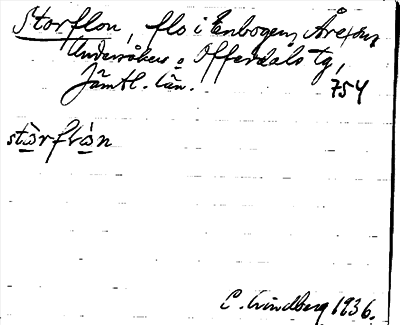 Storflon, flo i Enbogen, Åre sn,
Undersåkers o Offerdals tg,
Jämtl. län. 754
stòrflòn
C. Lindberg 1936.